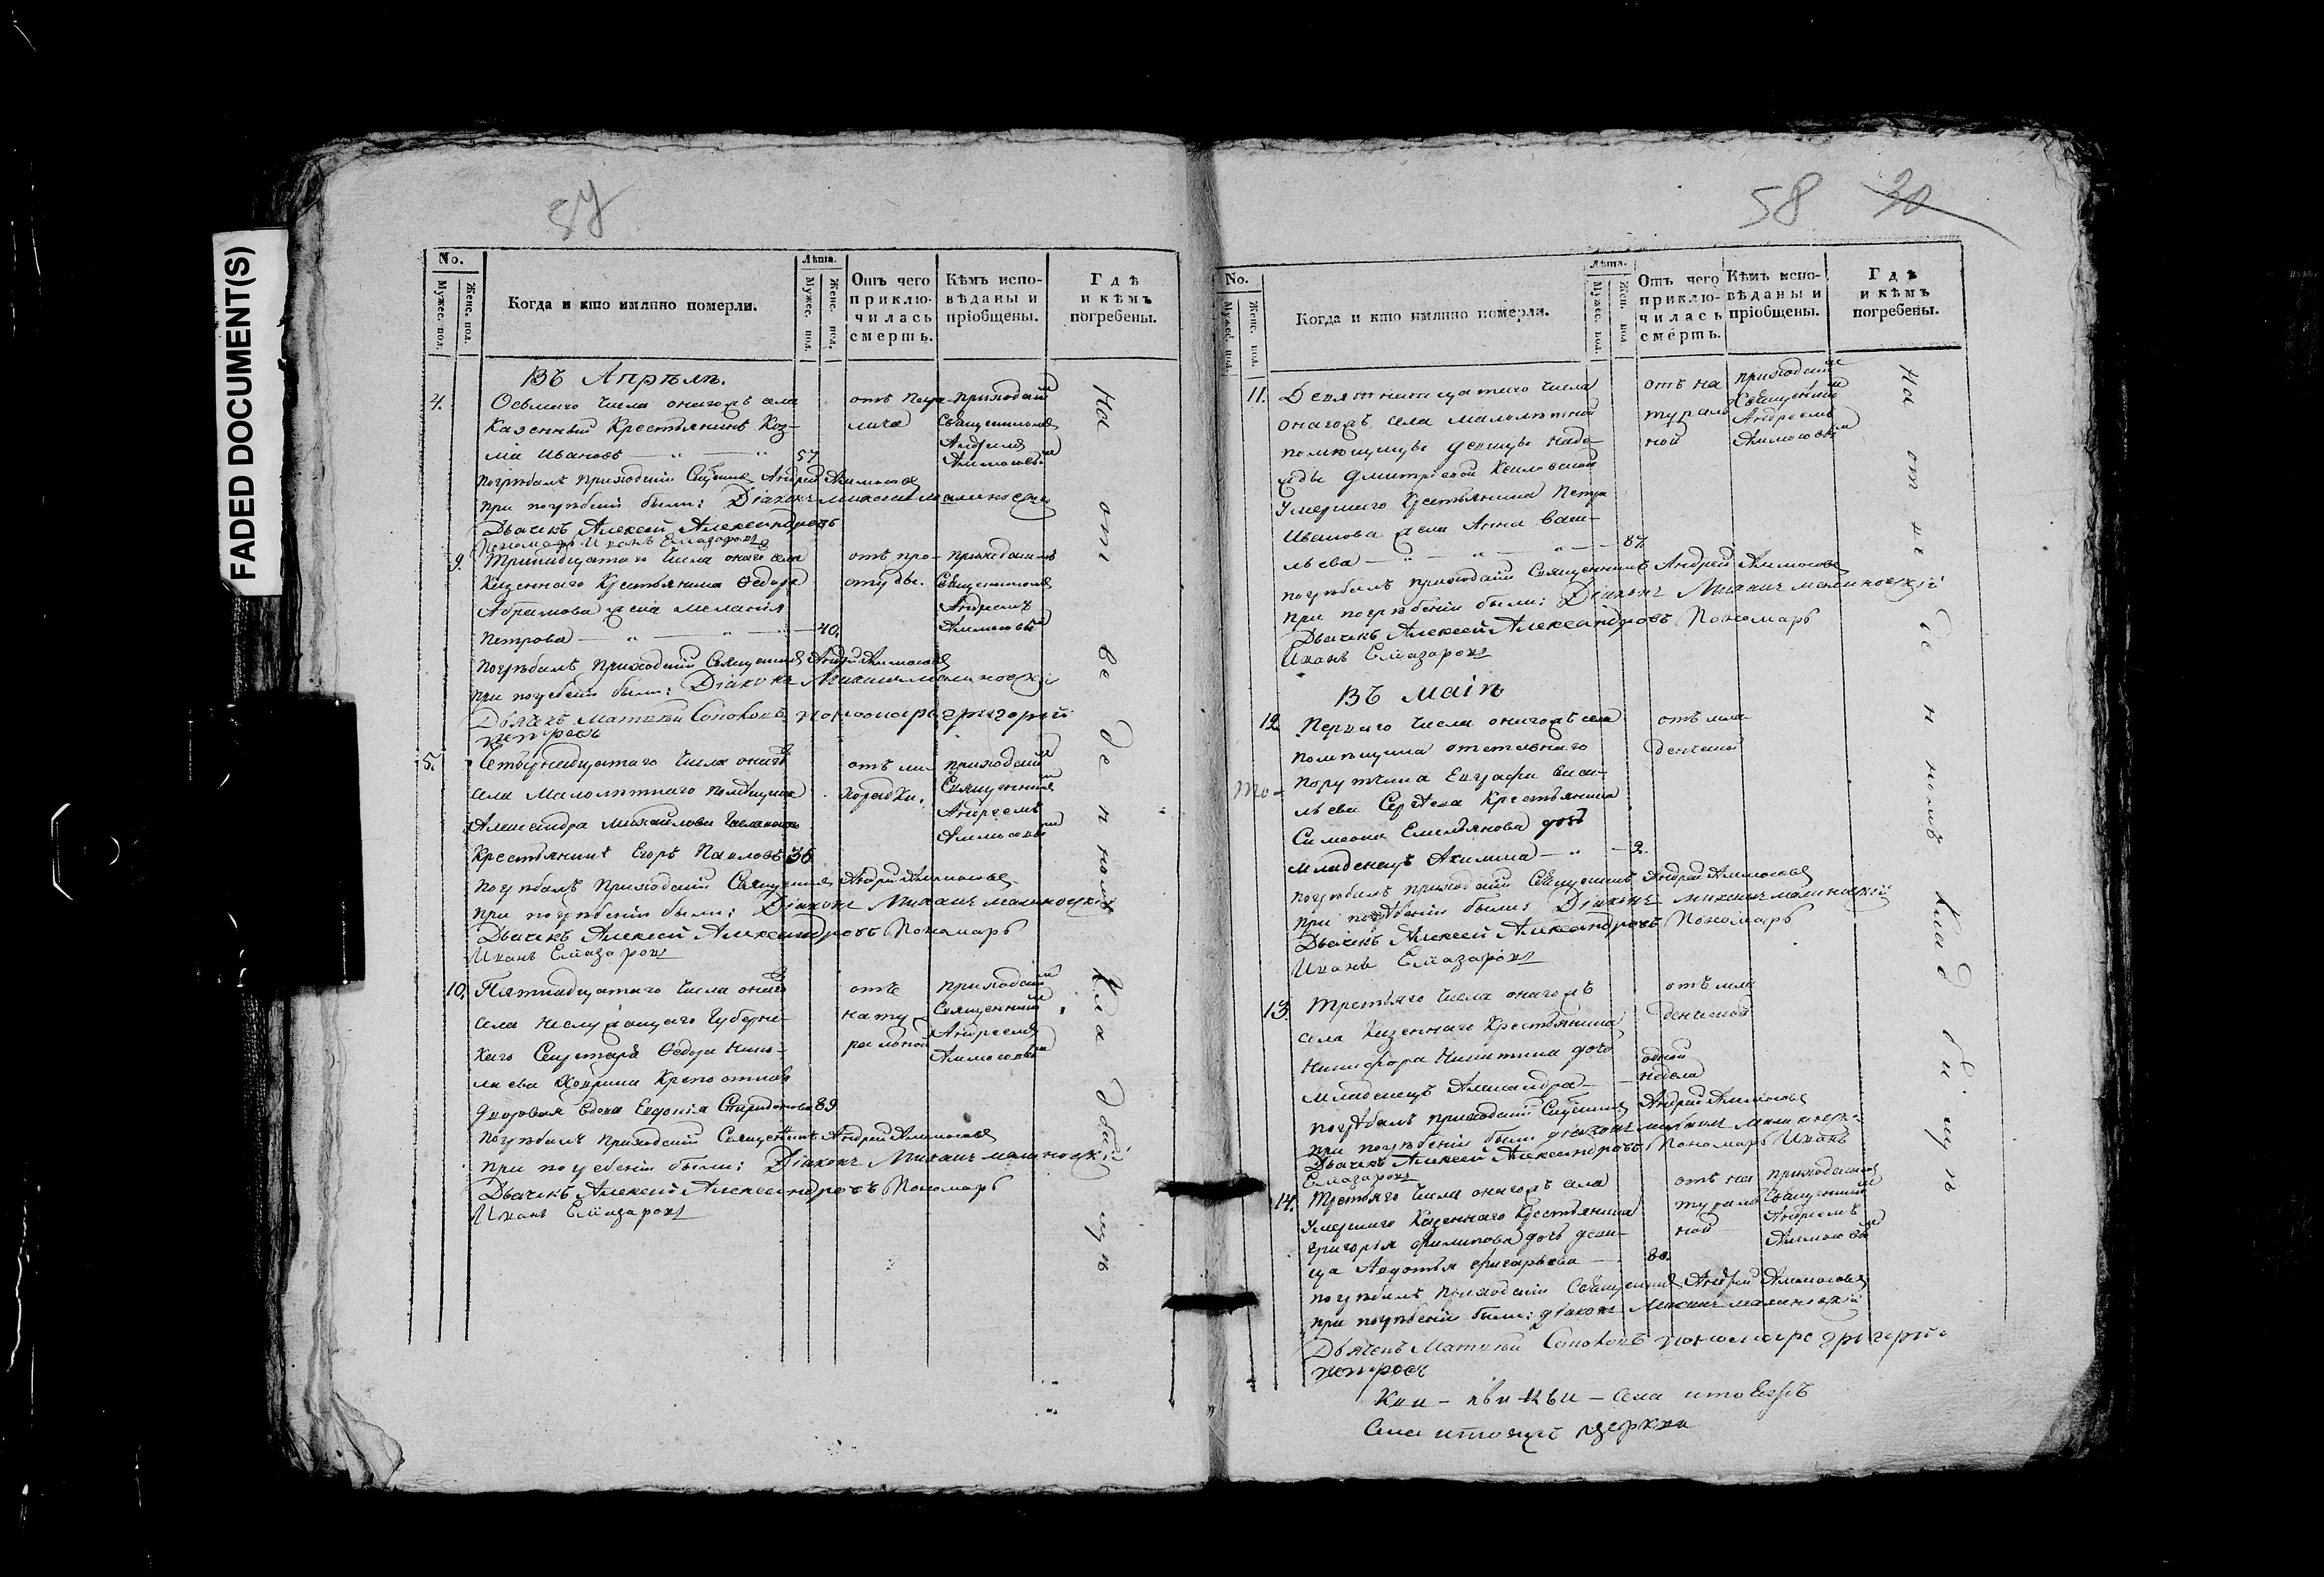 FADED DOCUMENT(S)
57
No.
Мужес. пол.
Женс. пол.
Когда и кто имянно померли.
Лѣта.
Мужес. пол.
Женс. пол.
Отъ чего приклю-
чилась
смерть.
Кѣмъ испо-
вѣданы и
пріобщены.
Гдѣ
и кѣмъ
погребены.
Въ Апрѣлѣ.
4. Осьмаго числа онагожъ села
Казенный Крестьянинъ Коз-
ма Ивановъ 57
отъ пара-
лича
приходскимъ
Священникомъ
Андреемъ
погребалъ приходскій Священникъ Андрей
при погребеніи были: Діаконъ Михаилъ Малиновскій
Дьячекъ Алексей Александровъ
Пономарь Иванъ Елиазаровъ
9. Тринадцатаго числа онагожъ села
Казеннаго Крестьянина Ѳедора
Абрамова жена Меланія
Петрова 40.
отъ про-
студы.
приходскимъ
Священникомъ
Андреемъ
погребалъ приходскій Священникъ Андрей
при погребеніи были: Діаконъ Михаилъ Малиновскій
Дьячекъ Матвей Соколовъ пономарь григорий
петровъ
5. Четырнадцатаго числа онагожъ
села Малолѣтнаго помѣщика
Александра Михайлова
Крестьянинъ Егоръ Павловъ 36
отъ ли-
хорадки.
приходскимъ
Священникомъ
Андреемъ
погребалъ приходскій Священникъ Андрей
при погребеніи были: Діаконъ Михаилъ Малиновскій
Дьячекъ Алексей Александровъ Пономарь
Иванъ Елиазаровъ
10. Пятнадцатаго числа онагожъ
села неслужащаго Губернс-
каго Секретаря Ѳедора Нико-
лаева
дворовая вдова Евдокія Спиридонова 89
отъ
нату-
ральной
приходскимъ
Священникомъ
Андреемъ
погребалъ приходскій Священникъ Андрей
при погребеніи были: Діаконъ Михаилъ Малиновскій
Дьячекъ Алексей Александровъ Пономарь
Иванъ Елиазаровъ
На отведенномъ кладбищѣ
58 30
No.
Мужес. пол.
Женс. пол.
Когда и кто имянно померли.
Лѣта.
Мужес. пол.
Жен. пол
Отъ чего
приклю-
чилась
смерть.
Кѣмъ испо-
вѣданы и
пріобщены.
Гдѣ
и кѣмъ
погребены.
11. Девятнатцатаго числа
онагожъ села малолѣтной
помѣщицы девицы Наде-
жды Дмитріевой
умершаго Крестьянина Петра
Иванова жена Анна Васи-
льева 87.
отъ на
тураль
ной
приходскимъ
Священникомъ
Андреемъ
погребалъ приходскій Священникъ Андрей
при погребеніи были: Діаконъ Михаилъ Малиновскій
Дьячекъ Алексей Александровъ Пономарь
Иванъ Елиазаровъ
Въ Маіѣ
12. Перваго числа онагожъ села
помѣщика отставнаго
порутчика Евграфа Васи-
льева Сергѣева Крестьянина
Симеона Емельянова дочь
младенецъ Акилина 2.
отъ мла-
денческой
погребалъ приходскій Священникъ Андрей
при погребеніи были: Діаконъ Михаилъ Малиновскій
Дьячекъ Алексей Александровъ Пономарь
Иванъ Елиазаровъ
13. Третьяго числа онагожъ
села Казеннаго Крестьянина
Никифора Никитина дочь
младенецъ Александра
одной
недели
отъ мла
денческой
погребалъ приходскій Священникъ Андрей
при погребеніи были діаконъ Михаилъ
Дьячекъ Алексей Александровъ Пономарь Иванъ
Елиазаровъ
14. Третьяго числа онагожъ села
умершаго Казеннаго Крестьянина
Григорія Филипова дочь деви-
ца Авдотья Григорьева 80.
отъ на
тураль
ной
приходскимъ
Священникомъ
Андреемъ
погребалъ приходскій Священникъ Андрей
при погребеніи были: діаконъ Михаилъ Малиновскій
Дьячекъ Матвей Соколовъ пономарь григорий
петровъ
На отведенномъ кладбищѣ